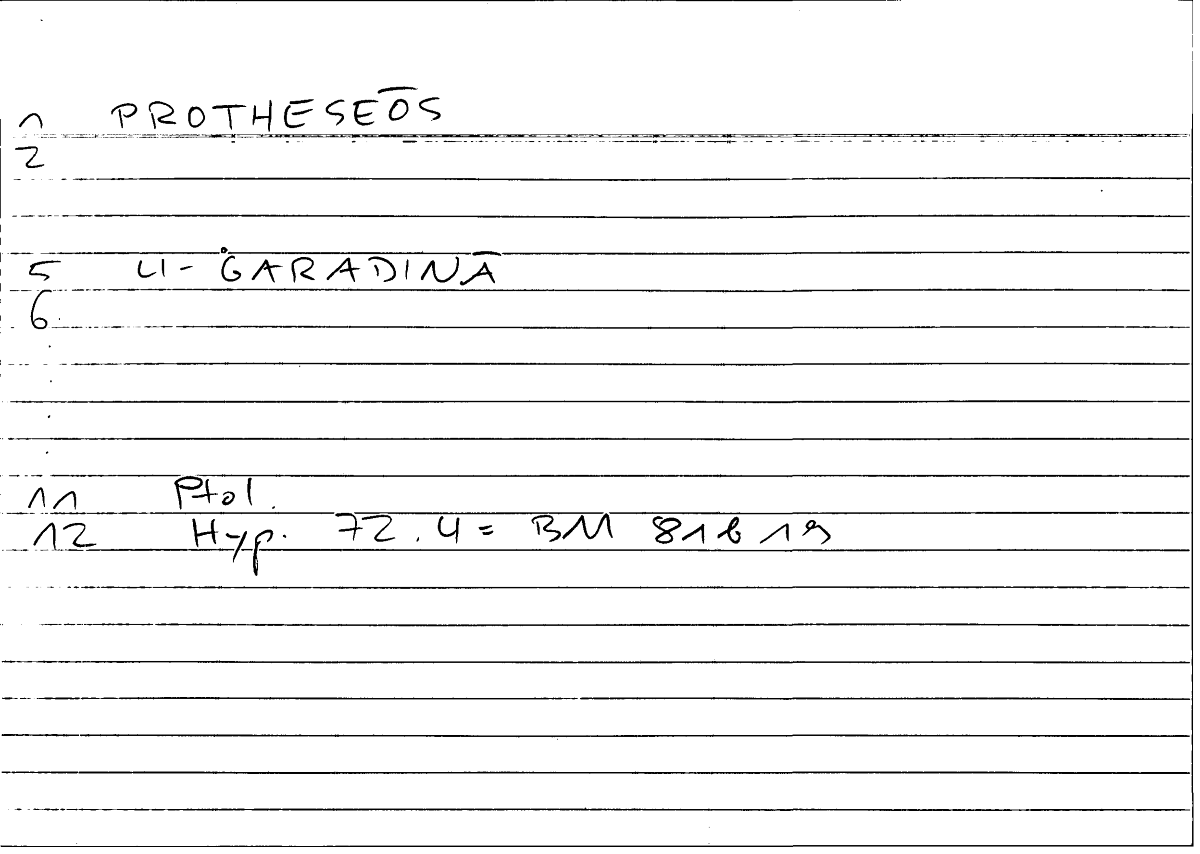 1 PROTHESEŌS
2
5 LI-ĠARADINĀ
6
.
.
.
.
11 Ptol.
12 Hyp. 72.4 = BM 81b19